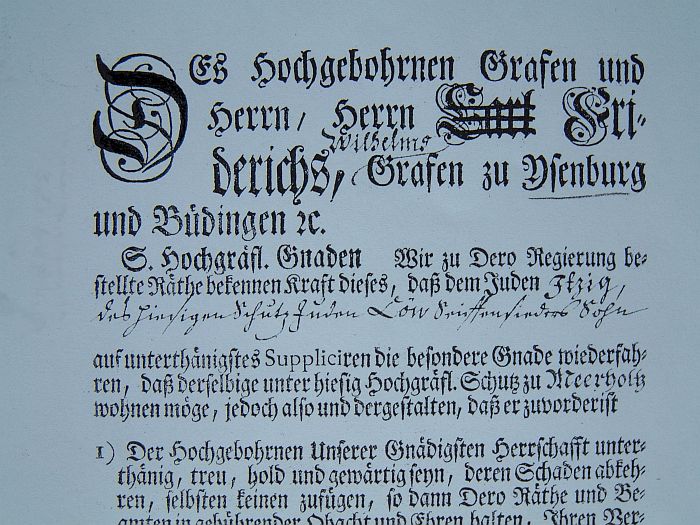 DEs Hochgebohrnen Grafen und
Herrn, Herrn Carl Fri-
Wilhelms
derichs, Grafen zu Ysenburg
und Büdingen ꝛc.
S. Hochgräfl. Gnaden Wir zu Dero Regierung be-
stellte Räthe bekennen Kraft dieses, daß dem Juden Itzig,
des hiesigen Schutz Juden Löw Seiffensieders Sohn
auf unterthänigstes Suppliciren die besondere Gnade wiederfah-
ren, daß derselbige unter hiesig Hochgräfl. Schutz zu Meerholtz
wohnen möge, jedoch also und dergestalten, daß er zuvorderist
1) Der Hochgebohrnen Unserer Gnädigsten Herrschafft unter-
thänig, treu, hold und gewärtig seyn, deren Schaden abkeh-
ren, selbsten keinen zufügen, so dann Dero Räthe und Be-
amten in gebührender Obacht und Ehren halten, Ihren Ver-